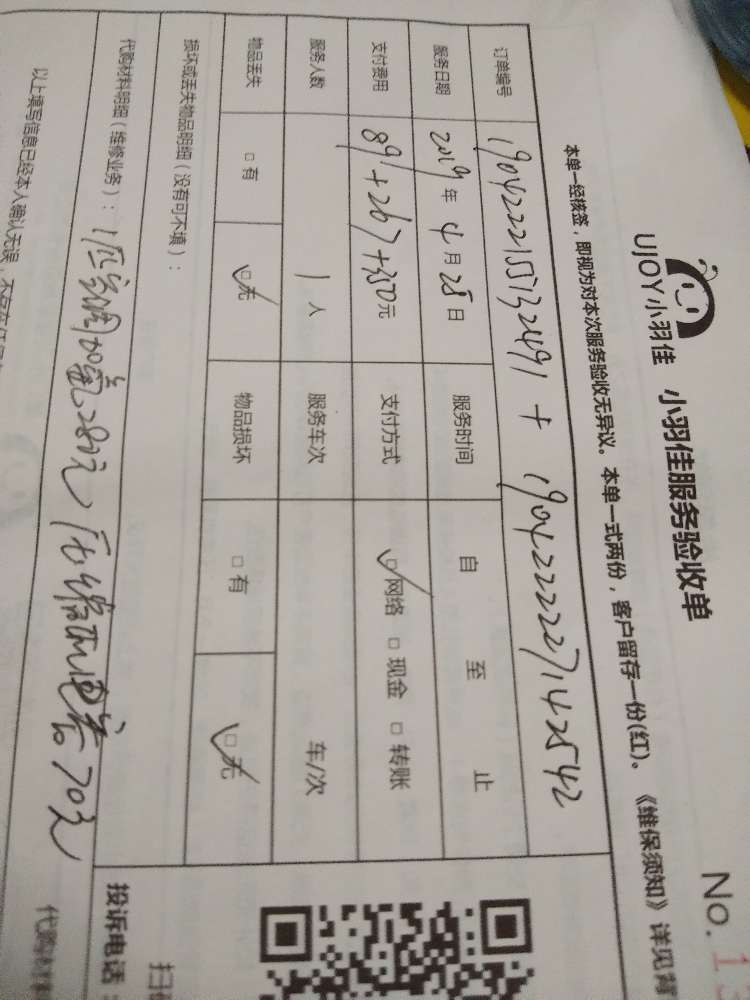 UJOY小羽佳 小羽佳服务验收单
No. 1
本单一经核签，即视为对本次服务验收无异议。本单一式两份，客户留存一份(红)。《维保须知》详见背
订单编号 1904222155132491 + 19042222271142542
服务日期 2019年4月28日 服务时间 自 至 止
支付费用 891+267+350元 支付方式 ☑网络 □现金 □转账
服务人数 1人 服务车次 车/次
物品丢失 □有 ☑无 物品损坏 □有 ☑无
损坏或丢失物品明细（没有可不填）：
代购材料明细（维修业务）：1匹空调加氟280元 压缩机电容70元
以上填写信息已经本人确认无误，不存在任何
投诉电话：